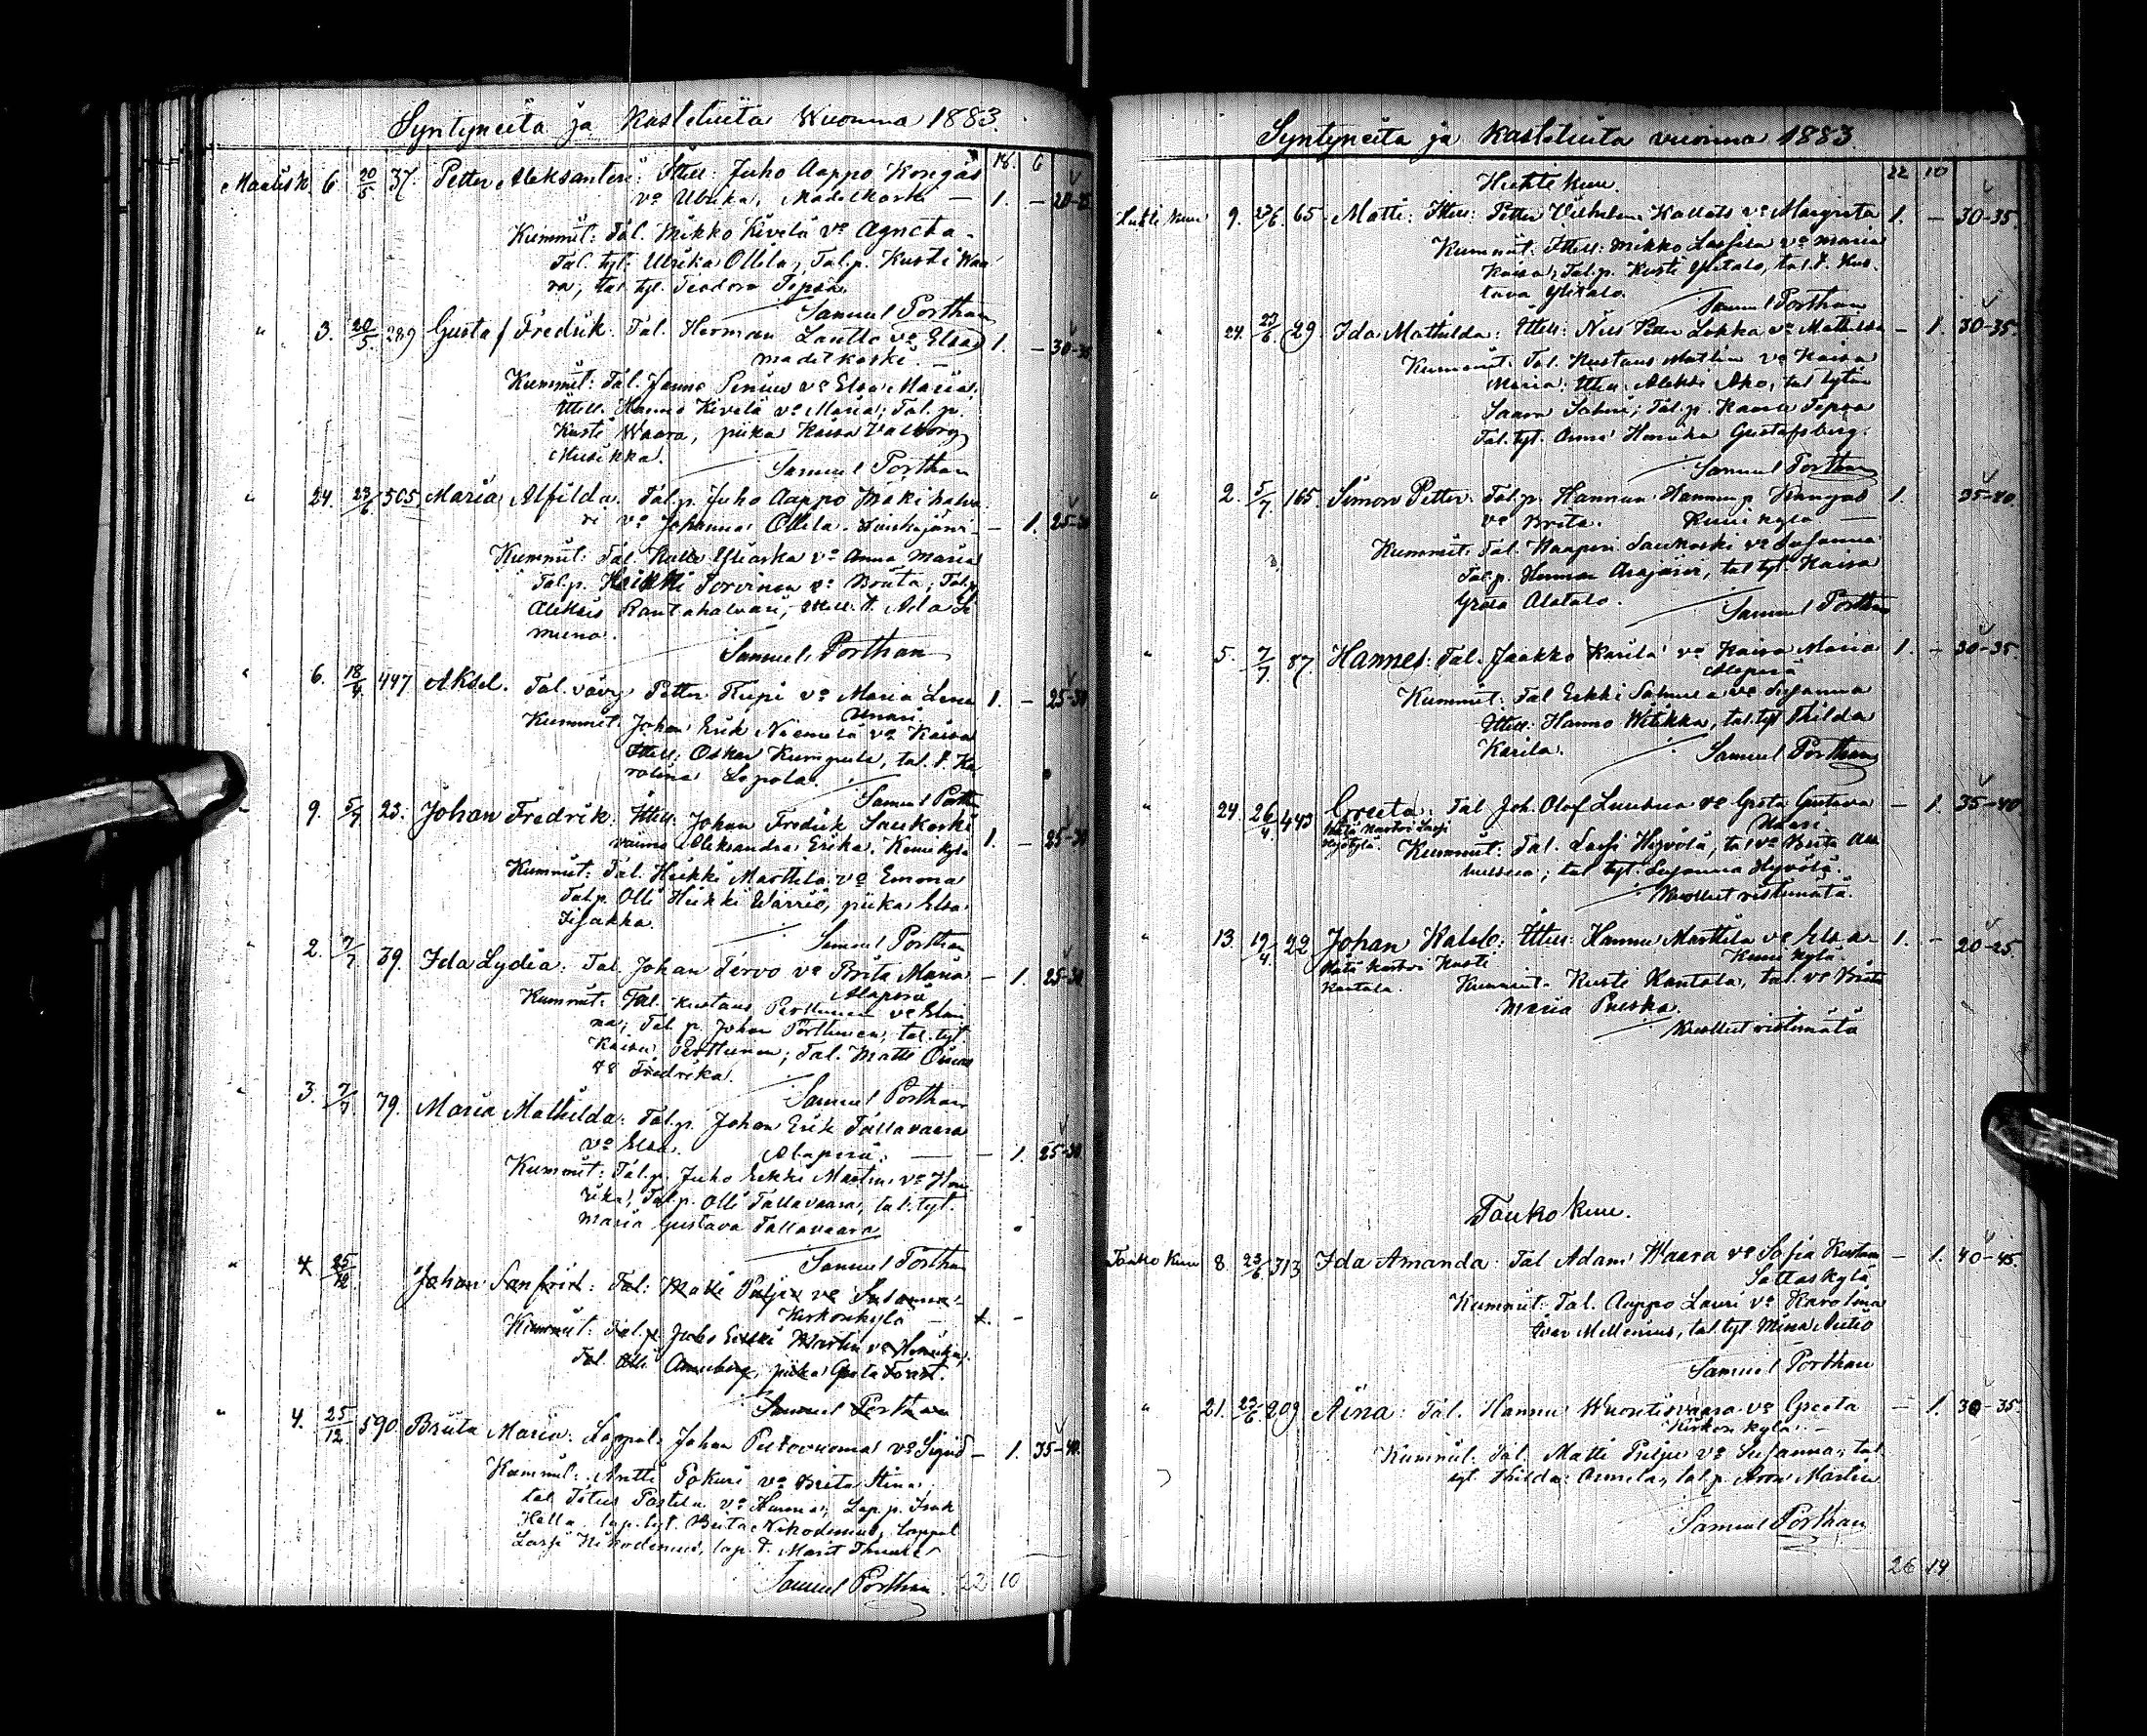 Syntyneitä ja Kastetuita Wuonna 1883.
18. 6
Maalisk. 6. 20/5 37. Petter Aleksanteri: Ittell: Juho Aappo Kongäs
vo Ulrika, Madetkoski — 1. —
Kummit: Tal. Mikko Kivelä vo Agneta
Tal. tyt. Ulrika Ollila, Tal.p. Kusti Waa
ra, tal. tyt. Teodora Tepsa
Samuel Porthan
" 3. 20/5. 289 Gustaf Fredrik: Tal. Herman Lantto vo Elsa 1. — 30-35
Madetkoski —
Kummit: Tal. Janne vo Elsa Maria;
Ittell. Hannu Kivelä vo Maria; Tal. p.
Kusti Waara, piika Kaisa Valborg
Musikka.
Samuel Porthan
" 24. 23/6 505 Maria Alfilda. Tal.p. Juho Aappo
vo Johanna Ollila. — 1. 25-30
Kummit: Tal. Kalle vo Anna Maria
Tal.p. Heikki Torvinen vo Briita; Tal.p
Aleksis Rantahalvari, Ittell. t.
Samuel Porthan
" 6. 18/4 447 Aksel. Tal. vävy Petter vo Maria Lena 1. — 25-30
Unari.
Kummit. Johan Erik Niemelä vo Kaisa
Ittell: Oskar Kumpula, tal. t. Ka
rolina Lepola.
Samuel Porthan
9. 5/7 23. Johan Fredrik: Ittell: Johan Fredrik Saukoski
vaimo Aleksandra Erika. 1. — 25-30
Kummit: Tal. Heikki Marttila vo Emma
Tal.p. Olli Heikki Warrio, piika Elsa
Samuel Porthan
" 2. 7/7 39. Ida Lydia: Tal. Johan Tervo vo Brita Maria — 1. 25-30
Alaperä
Kummit: Tal. Kustaus Perttunen vo
Tal. p. Johan Perttunen, tal. tyt.
Kaisa Perttunen; Tal. Matti
vo Fredrika.
Samuel Porthan
" 3. 7/7 79. Maria Mathilda: Tal.p. Johan Erik Tallavaara
vo Elsa. Alaperä. — 1. 25-30
Kummit: Tal.p. Juho Erkki Martin vo Hen
rika, Tal.p. Olli Tallavaara, tal. tyt.
Maria Gustava Tallavaara
Samuel Porthan
" 4 25/12 Johan Sanfrid: Tal: Matti Pulju vo Susanna
Kirkonkylä —
Kummit: Tal.p. Juho Erkki Martin vo Henrika,
Tal. Olli Anneberg, piika Greta Forst.
Samuel Porthan
" 4. 25/12 590 Briita Maria: Lappal. Johan Peltovuoma vo Sigrid — 1. 35-40
Kummit: Antti Pokuri vo Brita Stina,
tal. Titus Postila vo Hanna, Lap. p. Isak
Hetta lap. tyt. Brita Nikodemus, lappal.
Lassi Nikodemus, lap. t. Marit
Samuel Porthan. 22 10
Syntyneitä ja Kastetuita vuonna 1883.
22 10
Huhtikuu.
Huhtikuu 9. 23/6. 65. Matti: Ittell: Petter Vilhelm Kallats vo Margreta 1. — 30-35.
Kummit: Ittell: Mikko vo Maria
Kaisa; Tal.p. Kusti Ylitalo, tal. t. Kus
tava Ylitalo.
Samuel Porthan
" 24. 23/6. 29. Ida Mathilda: Ittell: Nils Petter Lokka vo Mathilda — 1. 30-35.
Kummit: Tal. Kustaus Mattila vo Kaisa
Maria: Ittell. Aleksi Aho, tal. tytär
Saara; Tal.p. Tepsa
Tal. tyt. Anna Henrika Gustafsberg.
Samuel Porthan
" 2. 5/7. 165. Simon Petter. Tal.p. Hannun Hannunp. Kangas 1. 35-40.
vo Brita. —
Kummit: Tal. Kaaperi Saukoski vo Susanna
Tal.p. Herman Arajärvi, tal. tyt. Kaisa
Greta Alatalo.
Samuel Porthan
" 5. 7/7 87. Hannes: Tal. Jaakko Karila vo Kaisa Maria 1. — 30-35.
Alaperä
Kummit: Tal Erkki vo Susanna
Ittell: Hannu Witikka, tal. tyt. Hilda
Karila.
Samuel Porthan
" 24. 26/4 443 Greeta: Tal Joh. Olof Luusua vo Greta Gustava — 1. 35-40.
Unari.
Hätä kastoi Lassi
Hyötylä. Kummit: Tal. Lassi, tal. vo Brita
tal. tyt. Susanna
Kuollut ristimätä.
" 13. 19/4. 22 Johan Kaleb: Ittell: Hannu Marttila vo Elsa 1. — 20-25.
Hätä kastoi Kusti
Kantola. Kummit: Kusti Kantola, tal. vo Briita
Maria Puska.
Kuollut ristimätä
Toukokuu.
Toukokuu 8. 23/6 313 Ida Amanda: Tal Adam Waara vo Sofia — 1. 40-45.
Sattaskylä
Kummit: Tal. Aappo Lauri vo Karolina
Iivar Mellenius, tal. tyt. Mina Autio
Samuel Porthan
" 21. 23/6 209 Aina: Tal. Hannu Wuontisvaara vo Greeta — 1. 30-35.
Kirkonkylä. —
Kummit. Tal. Matti Pulju vo Susanna, tal.
tyt. Hilda Annela, tal. p. Aron Martin
Samuel Porthan
26 14